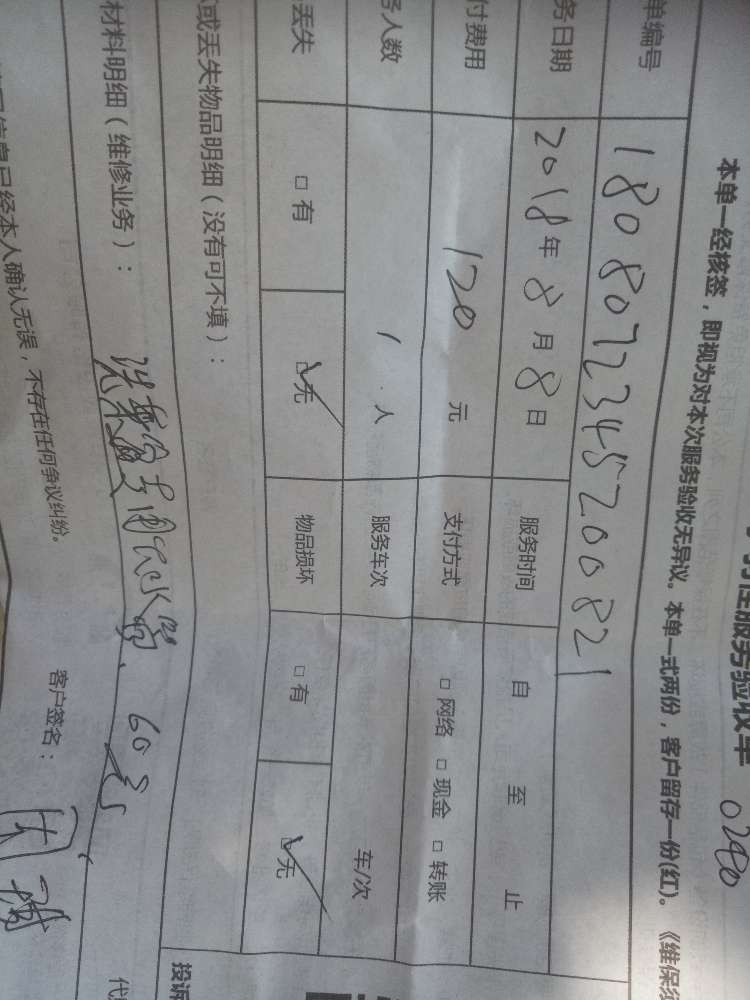 性服务验收单 0290
本单一经核签，即视为对本次服务验收无异议。本单一式两份，客户留存一份(红)。《维保须
单编号 1808072345200821
务日期 2018年8月8日 服务时间 自 至 止
付费用 120元 支付方式 □ 网络 □ 现金 □ 转账
务人数 1人 服务车次 车/次
丢失 □ 有 ☑ 无 物品损坏 □ 有 ☑ 无
或丢失物品明细（没有可不填）：
材料明细（维修业务）： 60元
信息已经本人确认无误，不存在任何争议纠纷。
客户签名：
投诉